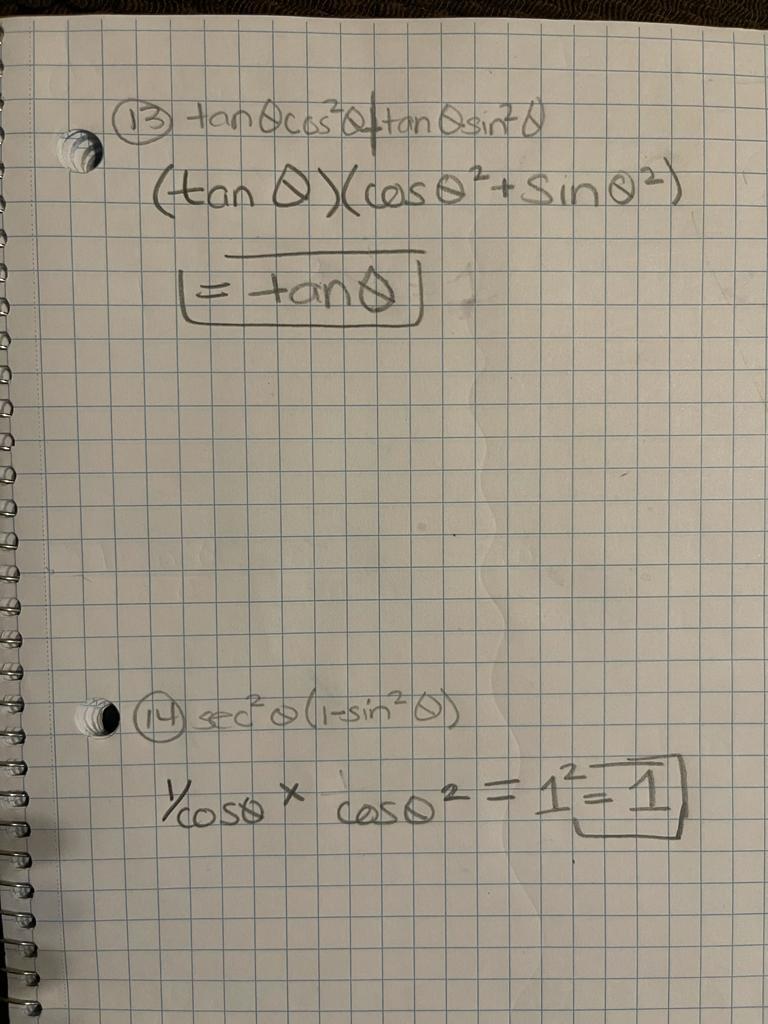 (13) tan θcos²θ+tan θsin²θ
(tan θ)(cos θ²+ Sin θ²)
= tan θ
(14) sec² θ (1-sin² θ)
1/cosθ × cos θ² = 1² = 1